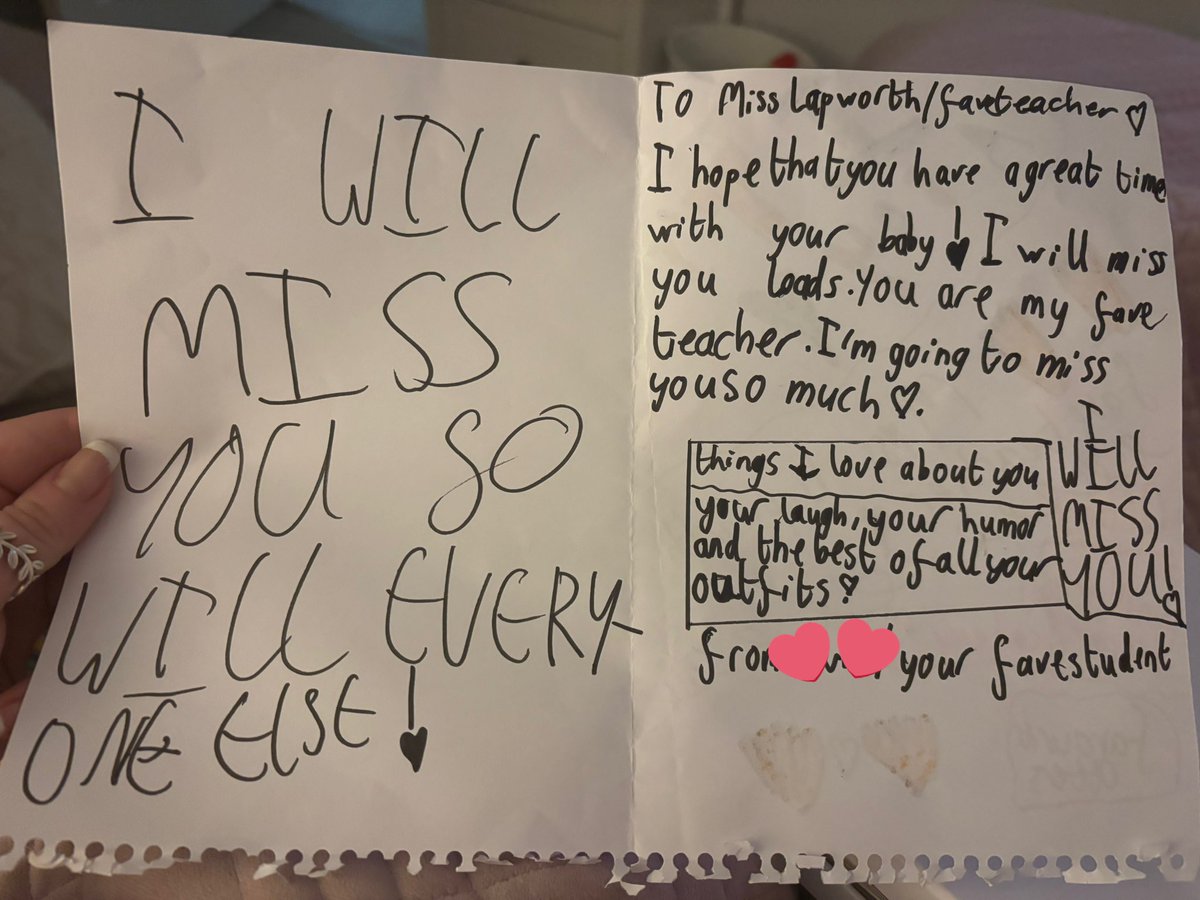 I WILL
MISS
YOU SO
WILL EVERY-
ONE ELSE!
To Miss Lapworth/fave teacher ♡
I hope that you have a great time
with your baby! I will miss
you loads. You are my fave
teacher. I'm going to miss
you so much ♡.
things I love about you
your laugh, your humor
and the best of all your
outfits!
I
WILL
MISS
YOU!
from your fave student